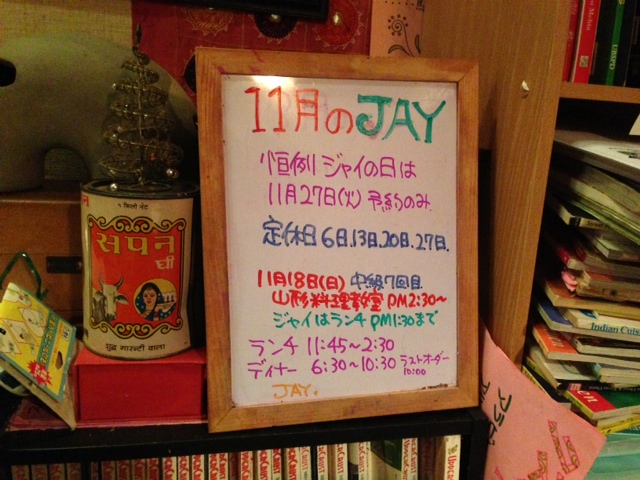 11月のJAY
恒例 ジャイの日は
11月27日(火) 予約のみ
定休日 6日.13日.20日.27日.
11月18日(日) 中級7回目
料理教室 PM2:30~
ジャイはランチ PM1:30まで
ランチ 11:45~2:30
ディナー 6:30~10:30 ラストオーダー
10:00
JAY.
१ किलो नेट
सपन
घी
शुद्ध गारन्टी वाला
Indian Cuisine
UpperCrust